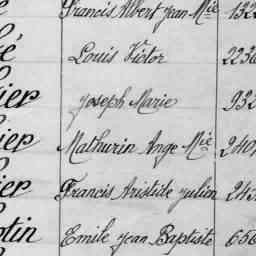 Francis Albert Jean Mie 132
é Louis Victor 2236
ier Joseph Marie 932
ier Mathurin Ange Mie 240
ier Francis Aristide Julien 243
otin Emile Jean Baptiste 656